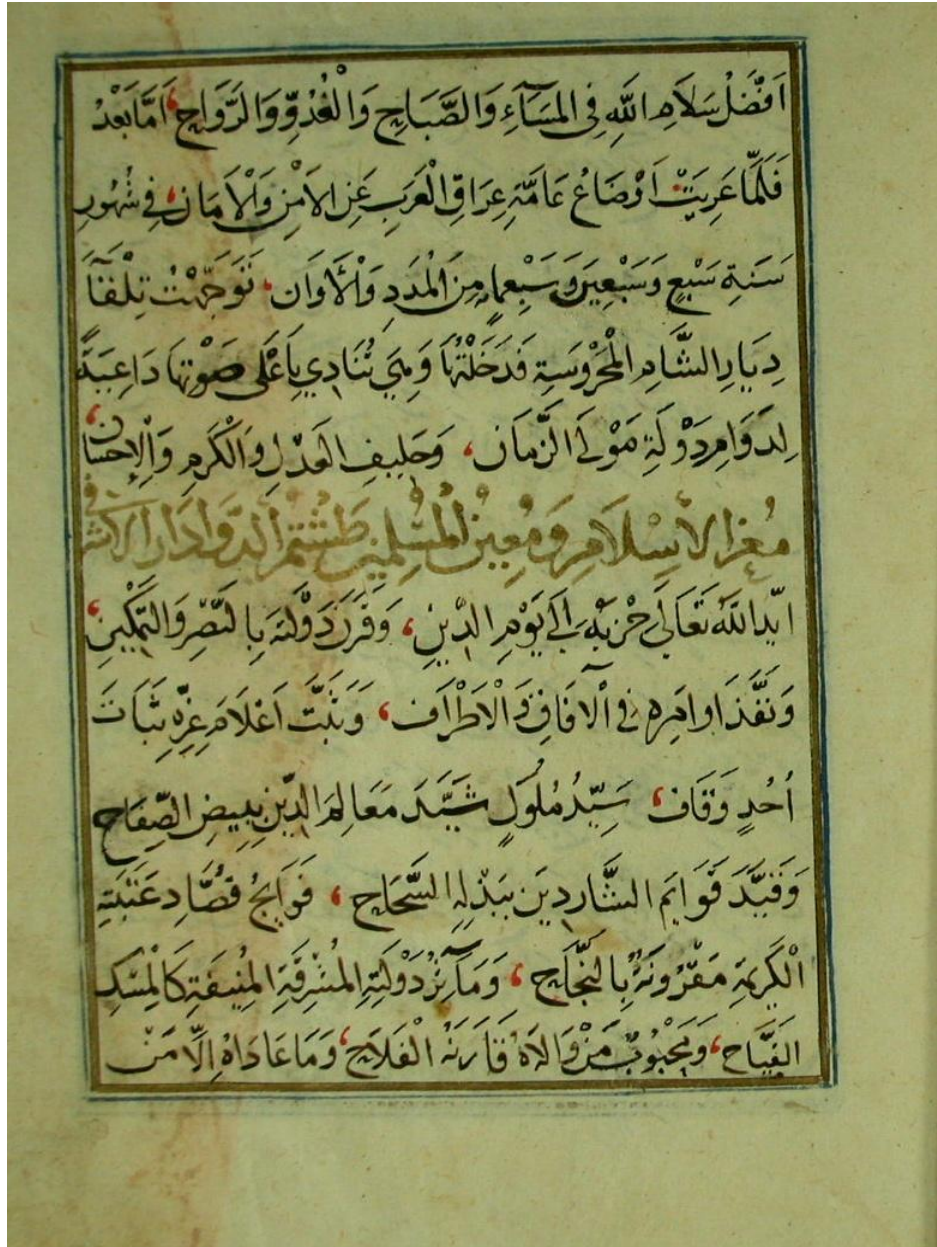 اَفْضَلُ سَلَامِ اللهِ فِى الْمَسَآءِ وَالصَّبَاحِ وَالْغُدُوِّ وَالرَّوَاحِ، اَمَّا بَعْدُ
فَلَمَّا عَرِيَتْ اَوْضَاعُ عَامَّةِ عِرَاقِ الْعَرَبِ عَنِ الاَمْنِ وَالْاَمَانِ، فِي شُهُورِ
سَنَةِ سَبْعٍ وَسَبْعِينَ وَسَبْعِمِايةٍ مِنَ الْمُدَدِ وَالْأَوَانِ، تَوَجَّهْتُ تِلْقَآءَ
دِيَارِ الشَّامِ الْمَحْرُوسَةِ فَدَخَلْتُهَا وَهِيَ تُنَادِي بِاَعْلَى صَوْتِهَا دَاعِيَةً
لِدَوَامِ دَوْلَةِ مَوْلَى الزَّمَانِ، وَحَلِيفِ الْعَدْلِ وَالْكَرَمِ وَالْاِحْسَانِ،
مُعِزِّ الاِسْلَامِ وَمُعِينِ الْمُسْلِمِينَ طَشْتَمُرْ الدَّوَادَارِ الاَشْرَفِي
اَيَّدَ اللهُ تَعَالَى حِزْبَهُ اِلَى يَوْمِ الدِّينِ، وَقَرَنَ دَوْلَتَهُ بِالنَّصْرِ وَالتَّمْكِينِ،
وَنَفَّذَ اَوَامِرَهُ فِي الْآفَاقِ وَالْاَطْرَافِ، وَثَبَّتَ اَعْلَامَ عِزِّهِ ثَبَاتَ
اُحُدٍ وَقَافٍ، سَيِّدُ مُلُوكٍ شَيَّدَ مَعَالِمَ الدِّينِ بِبِيضِ الصِّفَاحِ
وَقَيَّدَ قَوَايِمَ الشَّارِدِينَ بِبَذْلِهِ السَّحَّاحِ، فَوَايِجُ قُصَّادِ عَتَبَتِهِ
الْكَرِيمَةِ مَقْرُونَةٌ بِالنَّجَاحِ، وَمَآثِرُ دَوْلَتِهِ الْمُشْرِقَةِ الْمُنِيفَةِ كَالْمِسْكِ
الفَيَّاحِ، وَمَحْبُوبٌ مَنْ وَالَاهُ قَارَنَهُ الْفَلَاحُ، وَمَا عَادَاهُ اِلَّا مَنْ